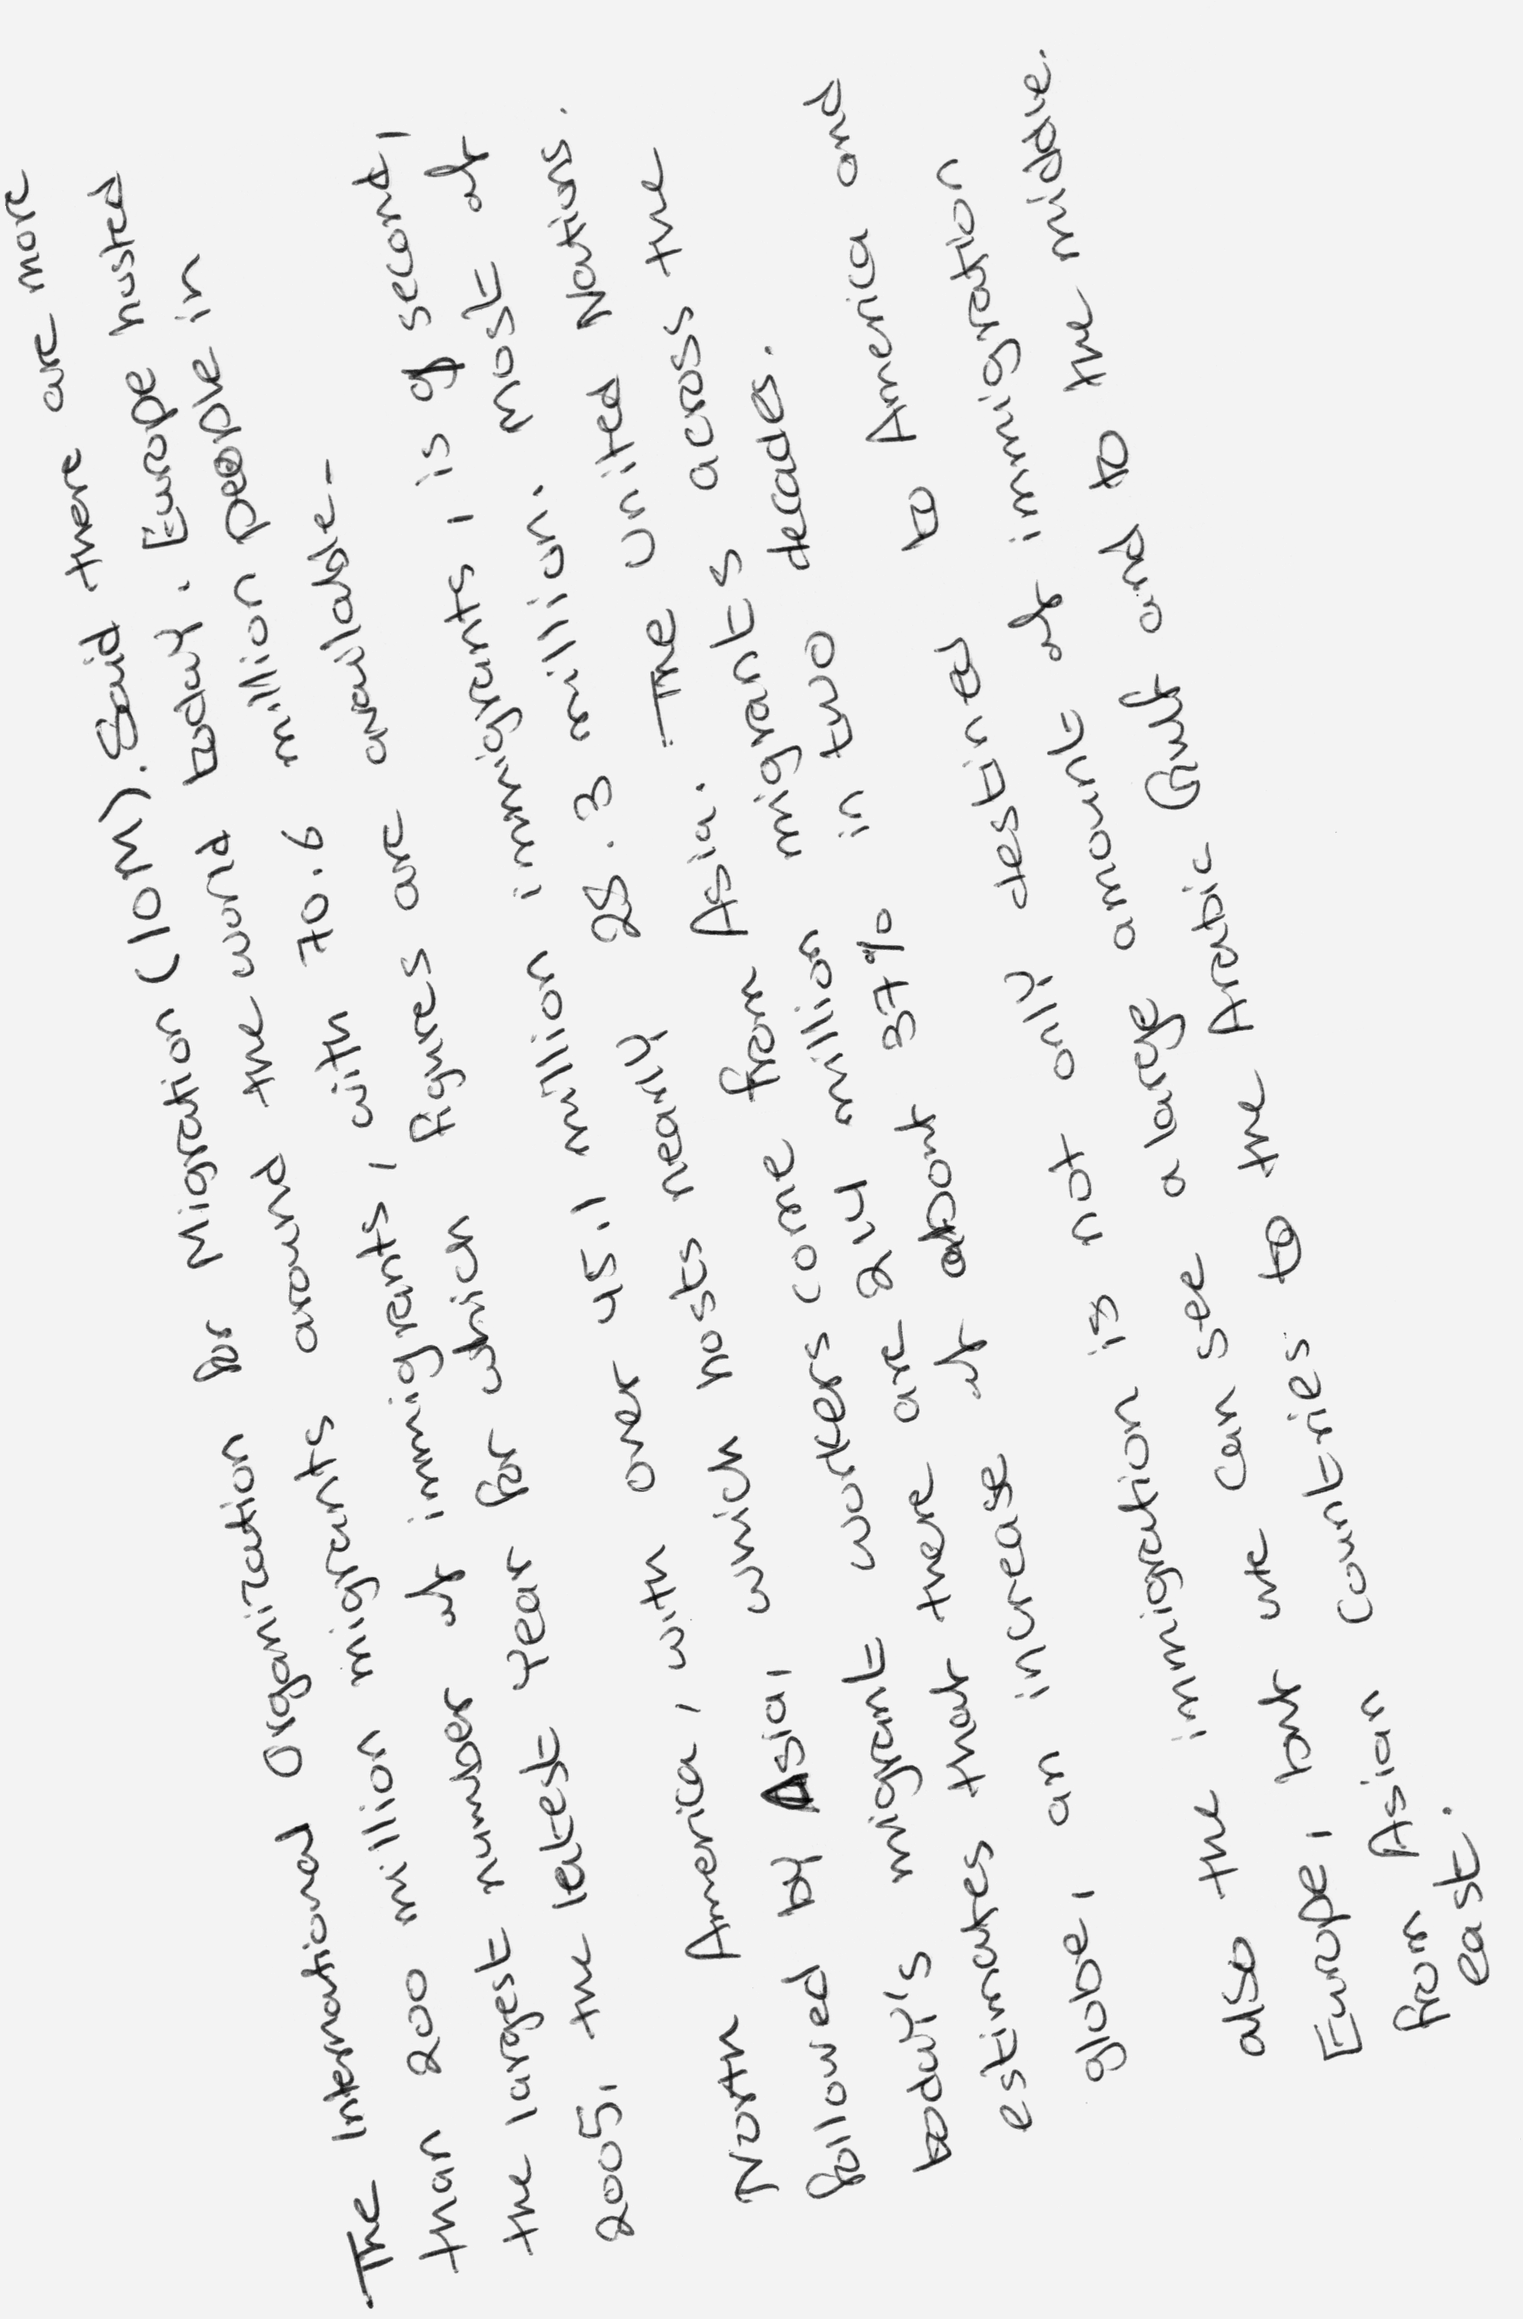 The International Organization for Migration (IOM). Said there are more
than 200 million migrants around the world today. Europe hosted
the largest number of immigrants, with 70.6 million people in
2005, the latest year for which figures are available-
North America, with over 45.1 million immigrants, is of second,
followed by Asia, which hosts nearly 28.3 million. Most of
today's migrant workers come from Asia. The United Nations.
estimates that there are 214 million migrants across the
globe, an increase of about 37% in two decades.
also the immigration is not only destined to America and
Europe, but we can see a large amount of immigration
from Asian countries to the Arabic Gulf and to the middle.
east.